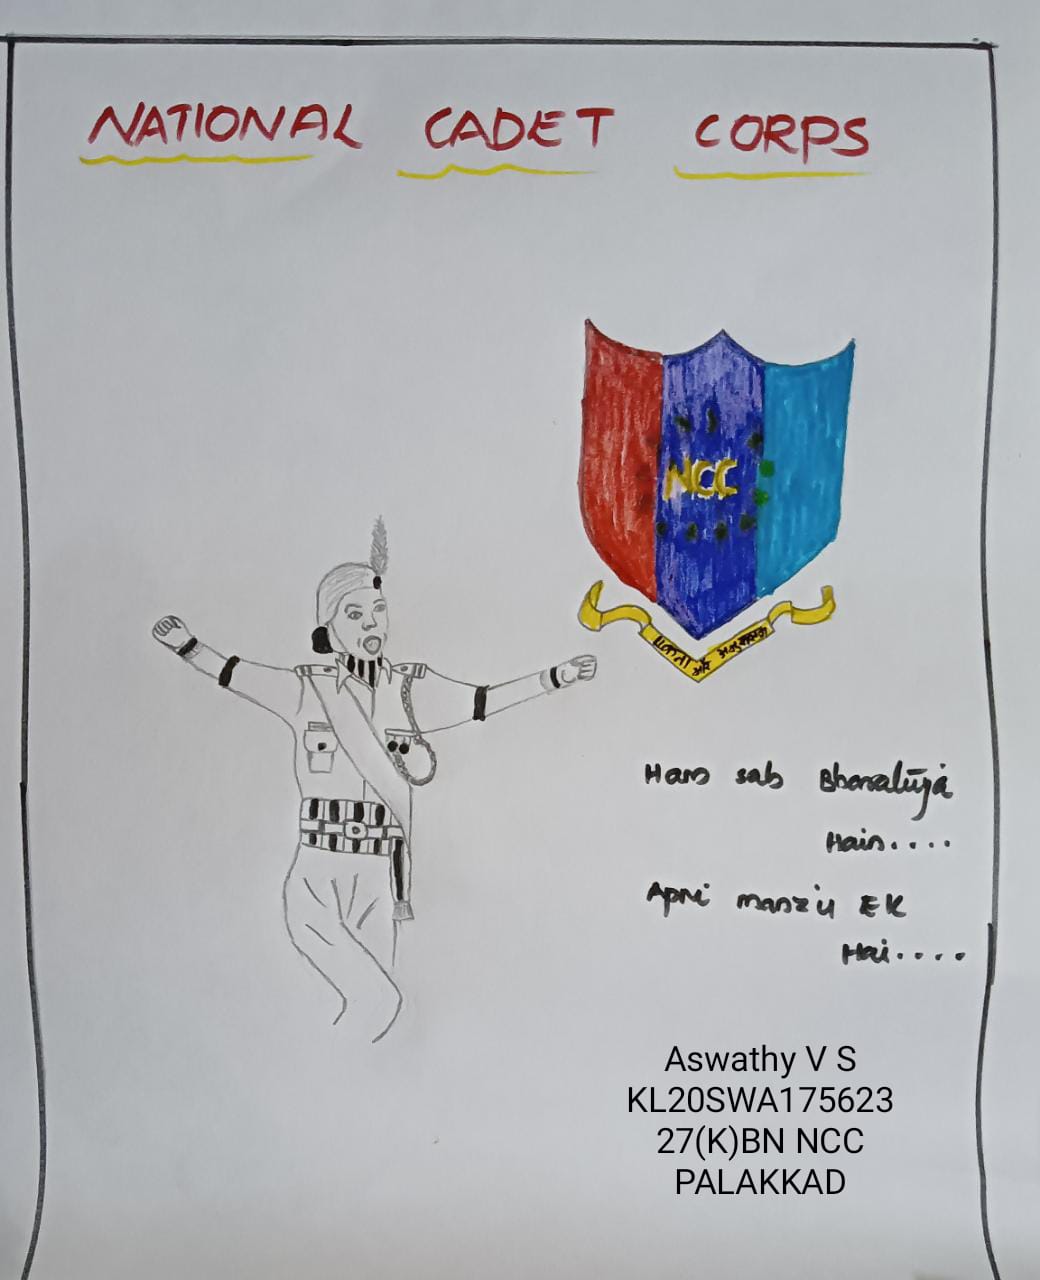 NATIONAL CADET CORPS
NCC
एकता और अनुशासन
Ham sab Bharatiya
Hain....
Apni manzil EK
Hai....
Aswathy V S
KL20SWA175623
27(K)BN NCC
PALAKKAD